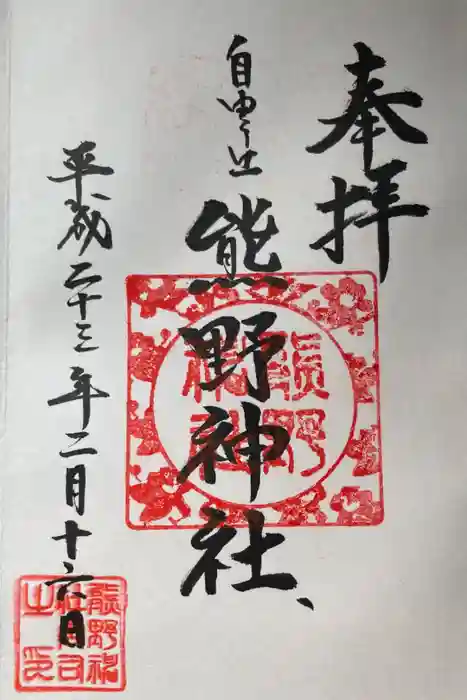 奉拝
自由ヶ丘
熊野神社
平成二十三年二月十六日
熊野
神社
熊野神
社宮司
之印